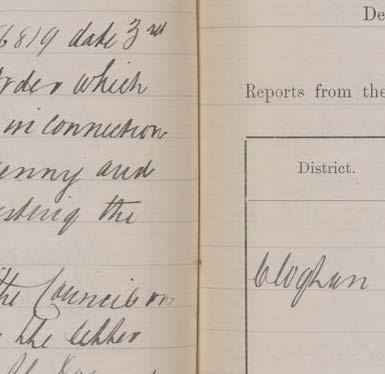 6819 date 3rd
order which
in connection
enny and
esting the
the Council on
the letter
De
Reports from the
District.
Cloghan